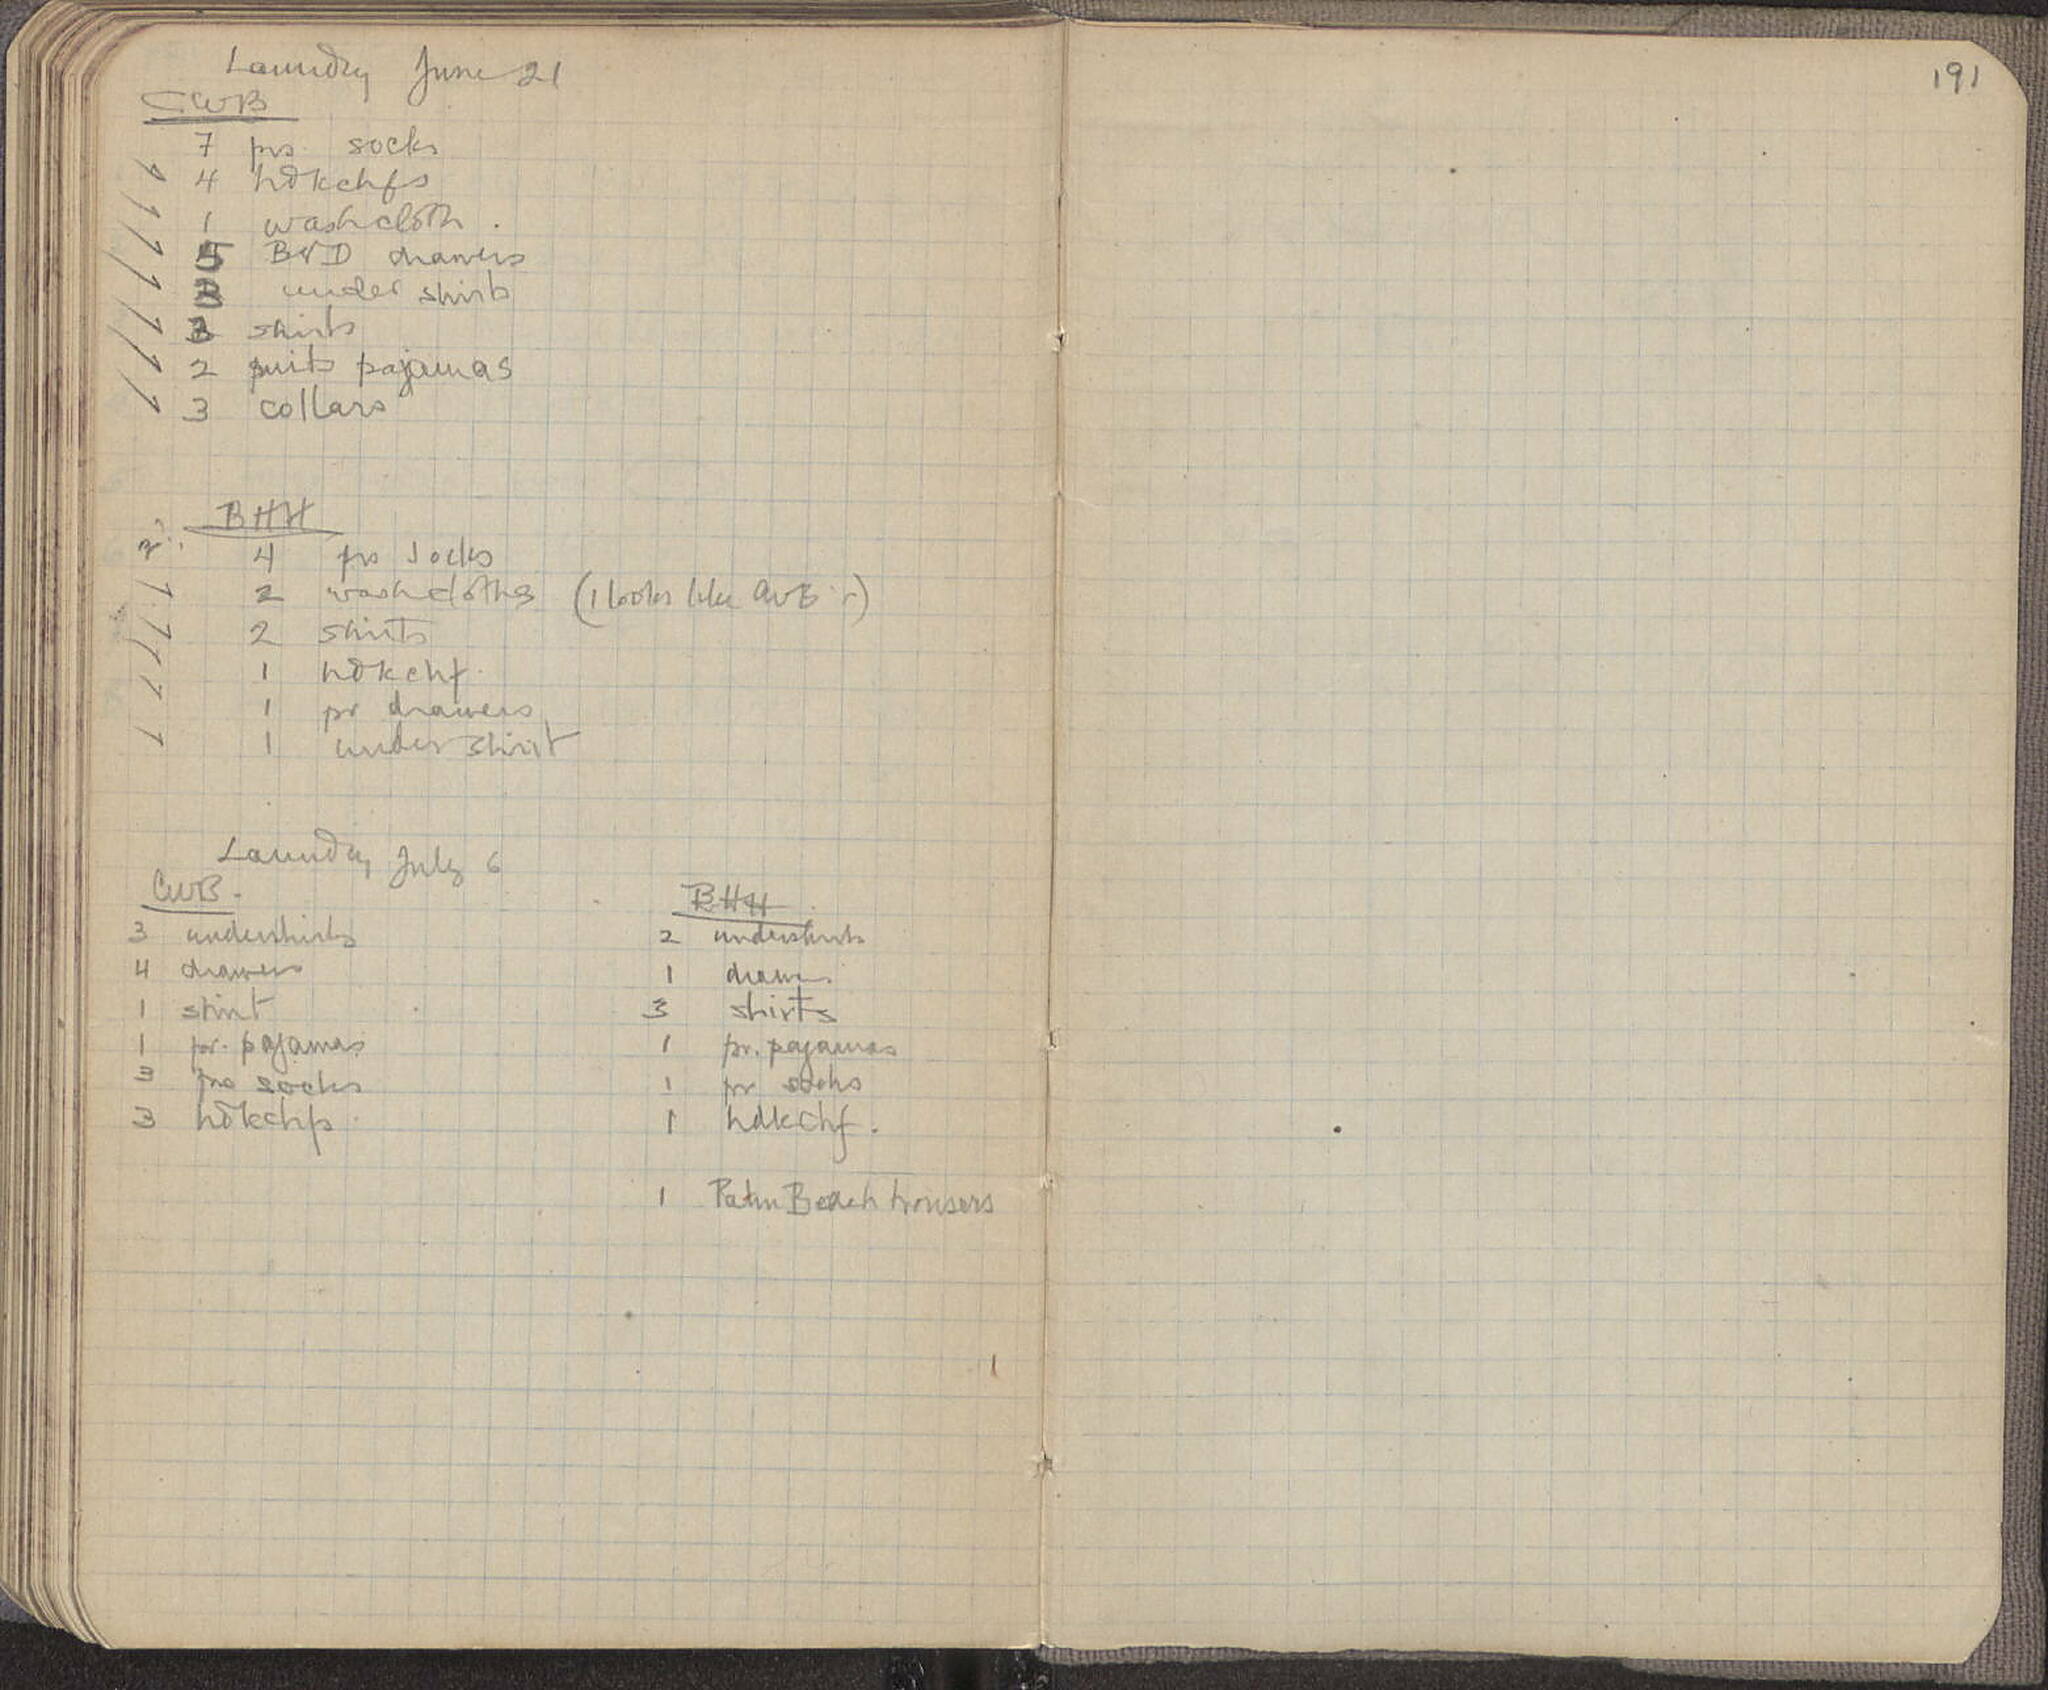 Laundry June 21
CWB
7 prs. socks
4 hdkchfs
1 washcloth.
5 BVD drawers
3 under shirts
3 shirts
2 suits pajamas
3 collars
BHH
4 prs socks
2 washcloths (1 looks like CWB's)
2 shirts
1 hdkchf.
1 pr drawers
1 under shirt
Laundry July 6
CWB.
3 undershirts
4 drawers
1 shirt
1 pr. pajamas
3 prs socks
3 hdkchfs.
BHH
2 undershirts
1 drawers
3 shirts
1 pr. pajamas
1 pr socks
1 hdkchf.
1 Palm Beach trousers
191